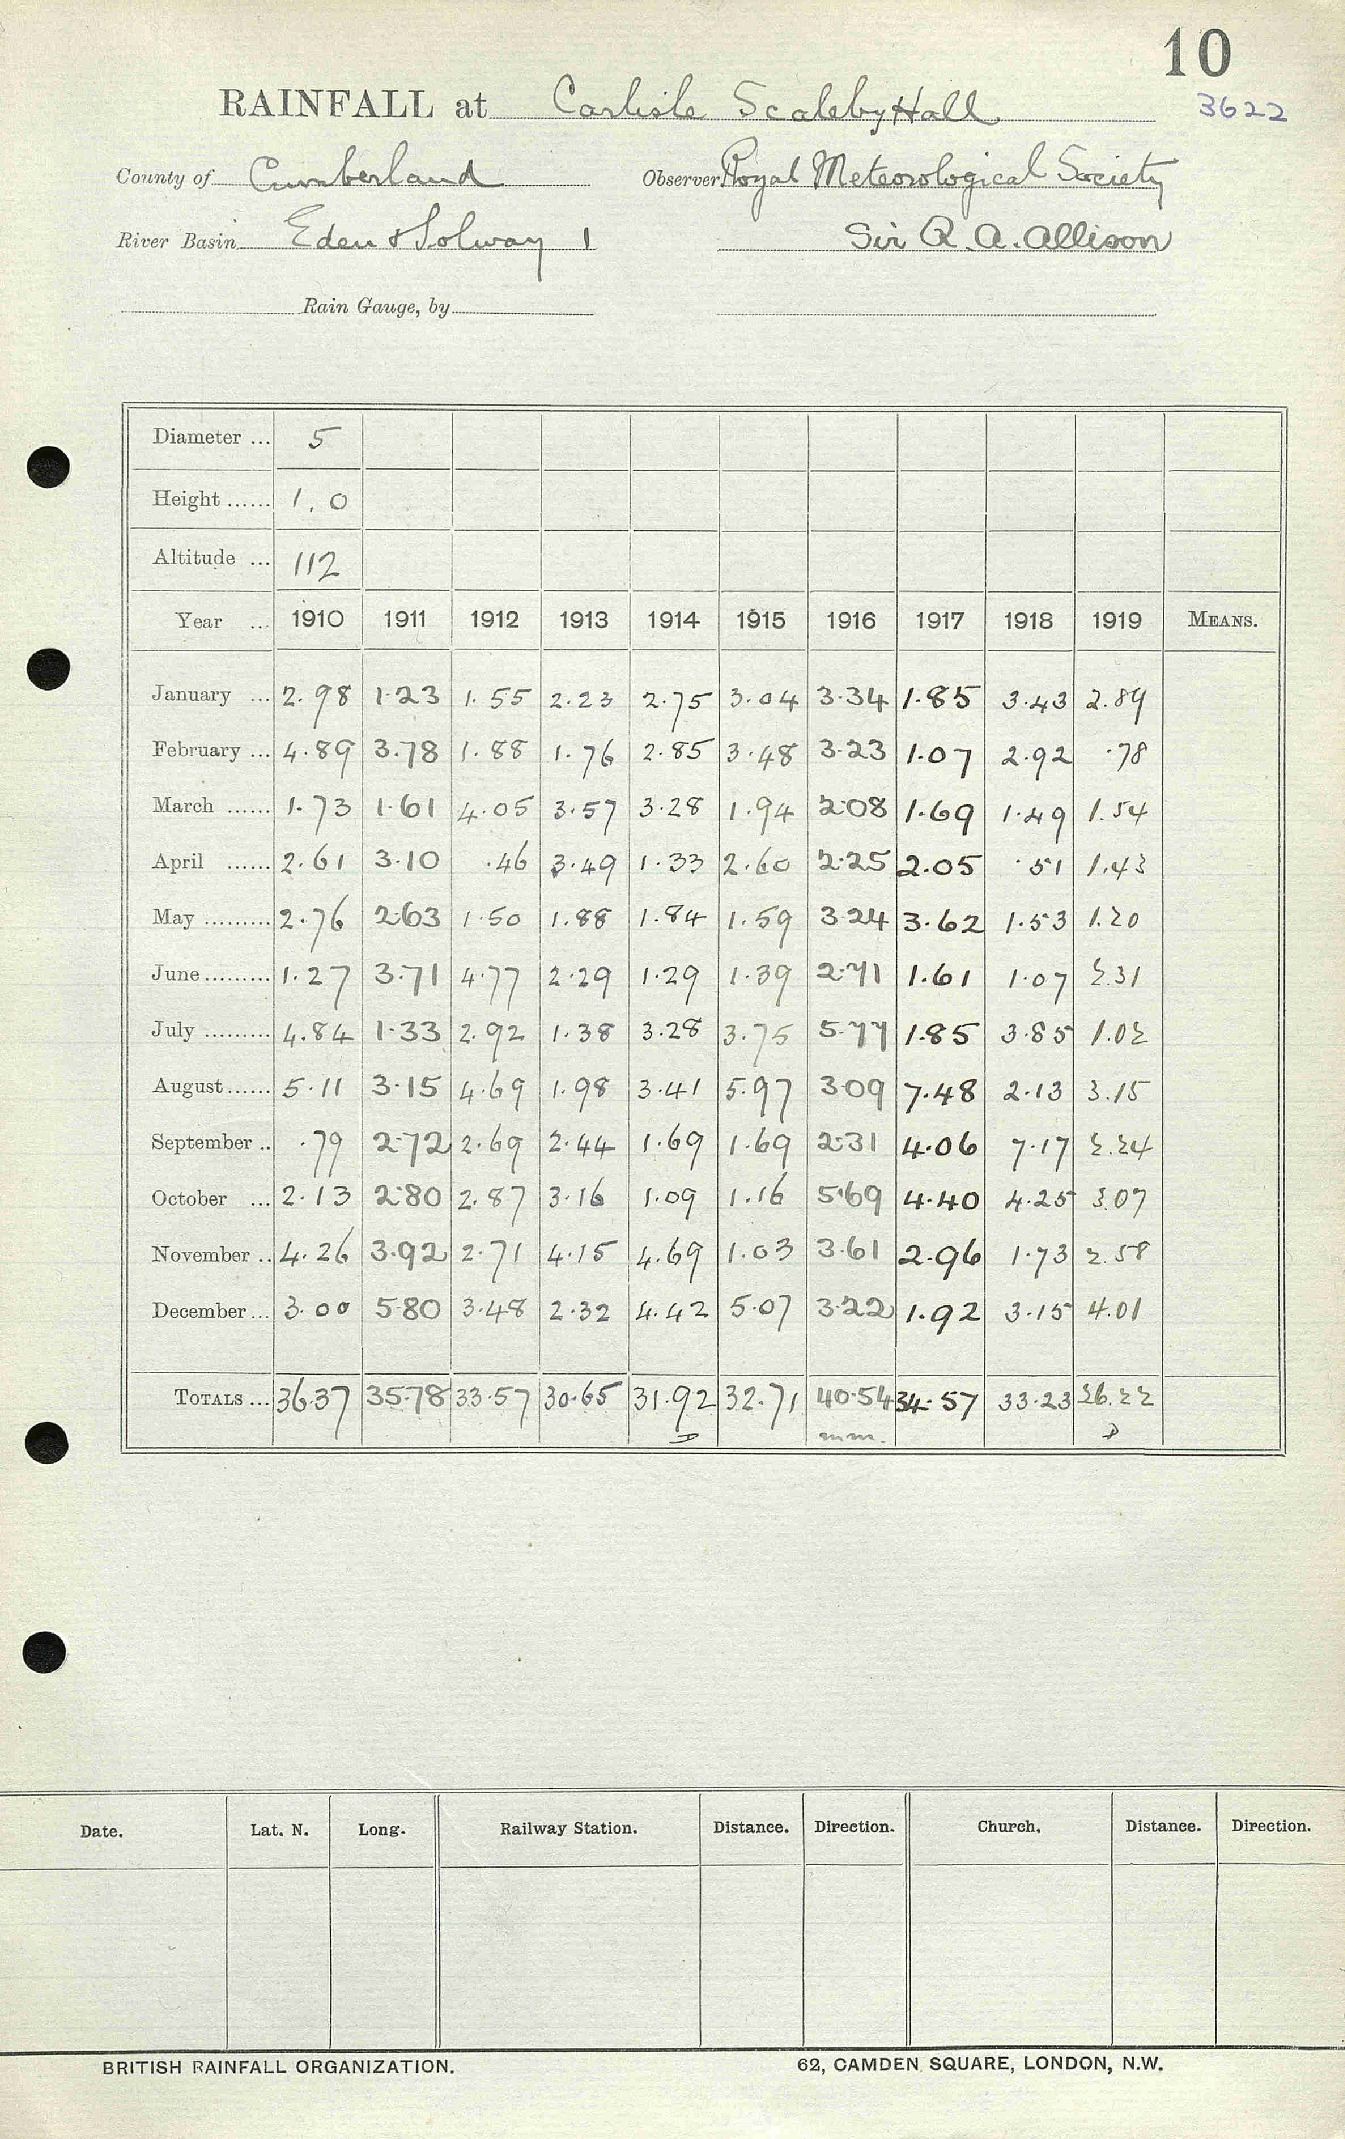 10
RAINFALL at Carlisle Scaleby Hall 3622
County of Cumberland Observer Royal Meteorological Society
River Basin Eden & Solway 1 Sir R. A. Allison
Rain Gauge, by
Diameter ... 5
Height ...... 1.0
Altitude ... 112
Year ... 1910 1911 1912 1913 1914 1915 1916 1917 1918 1919 MEANS.
January ... 2.98 1.23 1.55 2.23 2.75 3.04 3.34 1.85 3.43 2.89
February ... 4.89 3.78 1.88 1.76 2.85 3.48 3.23 1.07 2.92 .78
March ...... 1.73 1.61 4.05 3.57 3.28 1.94 2.08 1.69 1.49 1.54
April ...... 2.61 3.10 .46 3.49 1.33 2.60 2.25 2.05 .51 1.43
May ......... 2.76 2.63 1.50 1.88 1.84 1.59 3.24 3.62 1.53 1.20
June ......... 1.27 3.71 4.77 2.29 1.29 1.39 2.71 1.61 1.07 2.31
July ......... 4.84 1.33 2.92 1.38 3.28 3.75 5.77 1.85 3.85 1.02
August ...... 5.11 3.15 4.69 1.98 3.41 5.97 3.09 7.48 2.13 3.15
September .. .79 2.72 2.69 2.44 1.69 1.69 2.31 4.06 7.17 2.24
October ... 2.13 2.80 2.87 3.16 1.09 1.16 5.69 4.40 4.25 3.07
November .. 4.26 3.92 2.71 4.15 4.69 1.03 3.61 2.96 1.73 2.58
December ... 3.00 5.80 3.48 2.32 4.42 5.07 3.22 1.92 3.15 4.01
TOTALS ... 36.37 35.78 33.57 30.65 31.92 32.71 40.54 34.57 33.23 26.22
mm.
Date. Lat. N. Long. Railway Station. Distance. Direction. Church. Distance. Direction.
BRITISH RAINFALL ORGANIZATION. 62, CAMDEN SQUARE, LONDON, N.W.